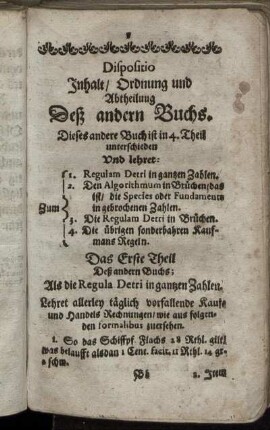 Dispositio
Inhalt/ Ordnung und
Abtheilung
Deß andern Buchs.
Dieses andere Buch ist in 4. Theil
unterschieden
Und lehret:
1. Regulam Detri in gantzen Zahlen.
2. Den Algorithmum in Brüchen/das
ist/ die Species oder Fundamenta
in gebrochenen Zahlen.
Zum
3. Die Regulam Detri in Brüchen.
4. Die übrigen sonderbahren Kauf-
mans Regeln.
Das Erste Theil
Deß andern Buchs:
Als die Regula Detri in gantzen Zahlen.
Lehret allerley täglich vorfallende Kauf-
und Handels Rechnungen/ wie aus folgen-
den formalibus zuersehen.
1. So das Schiffpf. Flachs 28 Rthl. gilt/
was belaufft alsdan 1 Cent. facit. 11 Rthl. 14 ge
2. Item